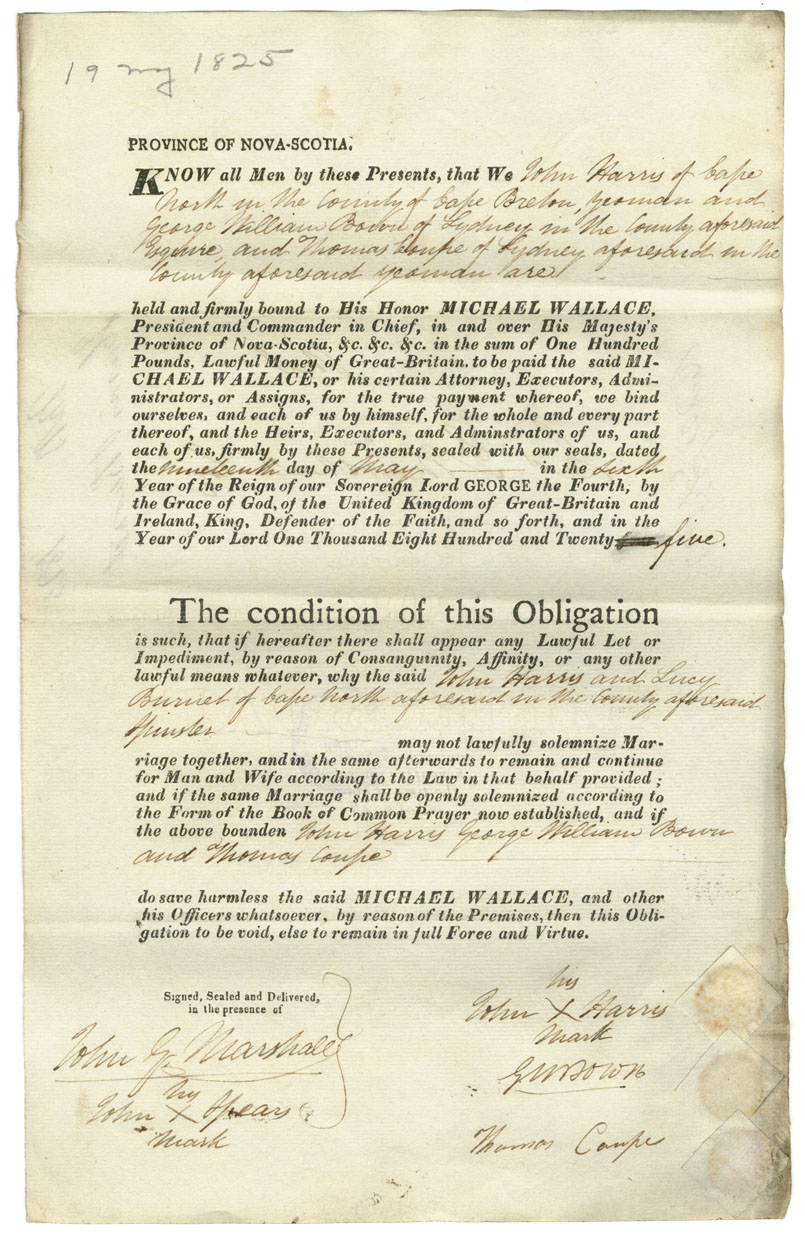 19 my 1825
PROVINCE OF NOVA-SCOTIA.
KNOW all Men by these Presents, that We John Harris of Cape
North in the County of Cape Breton yeoman and
George William Bown of Sydney in the County aforesaid
Esquire, and Thomas Coupe of Sydney aforesaid in the
County aforesaid yeoman are
held and firmly bound to His Honor MICHAEL WALLACE,
President and Commander in Chief, in and over His Majesty's
Province of Nova-Scotia, &c. &c. &c. in the sum of One Hundred
Pounds, Lawful Money of Great-Britain, to be paid the said MI-
CHAEL WALLACE, or his certain Attorney, Executors, Admi-
nistrators, or Assigns, for the true payment whereof, we bind
ourselves, and each of us by himself, for the whole and every part
thereof, and the Heirs, Executors, and Adminstrators of us, and
each of us, firmly by these Presents, sealed with our seals, dated
the nineteenth day of May in the Sixth
Year of the Reign of our Sovereign Lord GEORGE the Fourth, by
the Grace of God, of the United Kingdom of Great-Britain and
Ireland, King, Defender of the Faith, and so forth, and in the
Year of our Lord One Thousand Eight Hundred and Twenty five.
The condition of this Obligation
is such, that if hereafter there shall appear any Lawful Let or
Impediment, by reason of Consanguinity, Affinity, or any other
lawful means whatever, why the said John Harris and Lucy
Burnet of Cape North aforesaid in the County aforesaid
Spinster
may not lawfully solemnize Mar-
riage together, and in the same afterwards to remain and continue
for Man and Wife according to the Law in that behalf provided;
and if the same Marriage shall be openly solemnized according to
the Form of the Book of Common Prayer now established, and if
the above bounden John Harris George William Bown
and Thomas Coupe
do save harmless the said MICHAEL WALLACE, and other
his Officers whatsoever, by reason of the Premises, then this Obli-
gation to be void, else to remain in full Force and Virtue.
Signed, Sealed and Delivered,
in the presence of
John G. Marshall
his
John X Spears
mark
his
John X Harris
mark
GWBown
Thomas Coupe